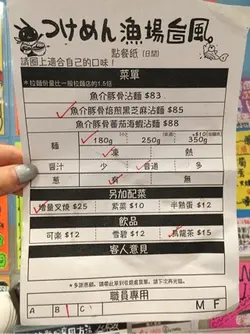 つけめん漁場台風。
點餐紙(日間)
請圈上適合自己的口味!
*拉麵份量比一般拉麵店的1.5倍
菜單
魚介豚骨沾麵 $83
魚介豚骨焙煎黑芝麻沾麵 $85
魚介豚骨蕃茄海蝦沾麵 $88
麵 180g 250g 350g
凍 熱
醬汁 少 普通 多
葱 有 無
另加配菜
增量叉燒 $25 紫菜 $10 半熟蛋 $12
飲品
可樂 $12 雪碧 $12 烏龍茶 $15
客人意見
職員專用
A B C M F